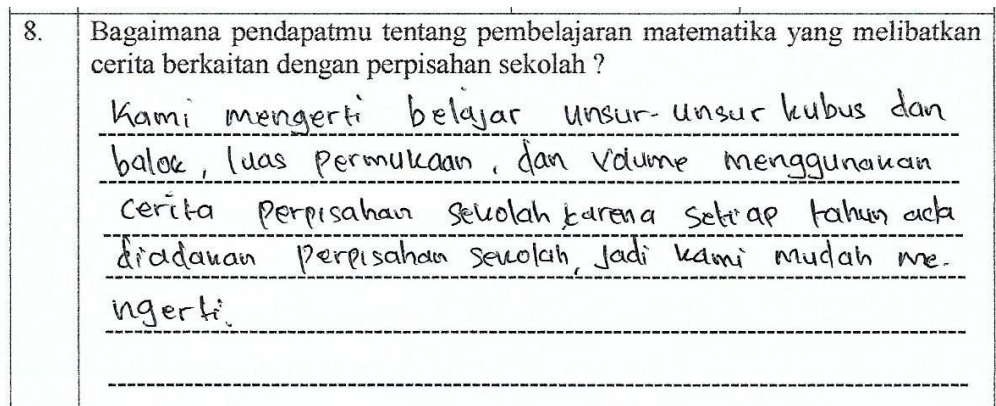 8. Bagaimana pendapatmu tentang pembelajaran matematika yang melibatkan
cerita berkaitan dengan perpisahan sekolah ?
Kami mengerti belajar unsur-unsur kubus dan
balok, luas permukaan, dan volume menggunakan
cerita perpisahan sekolah karena setiap tahun ada
diadakan perpisahan sekolah, jadi kami mudah me-
ngerti.